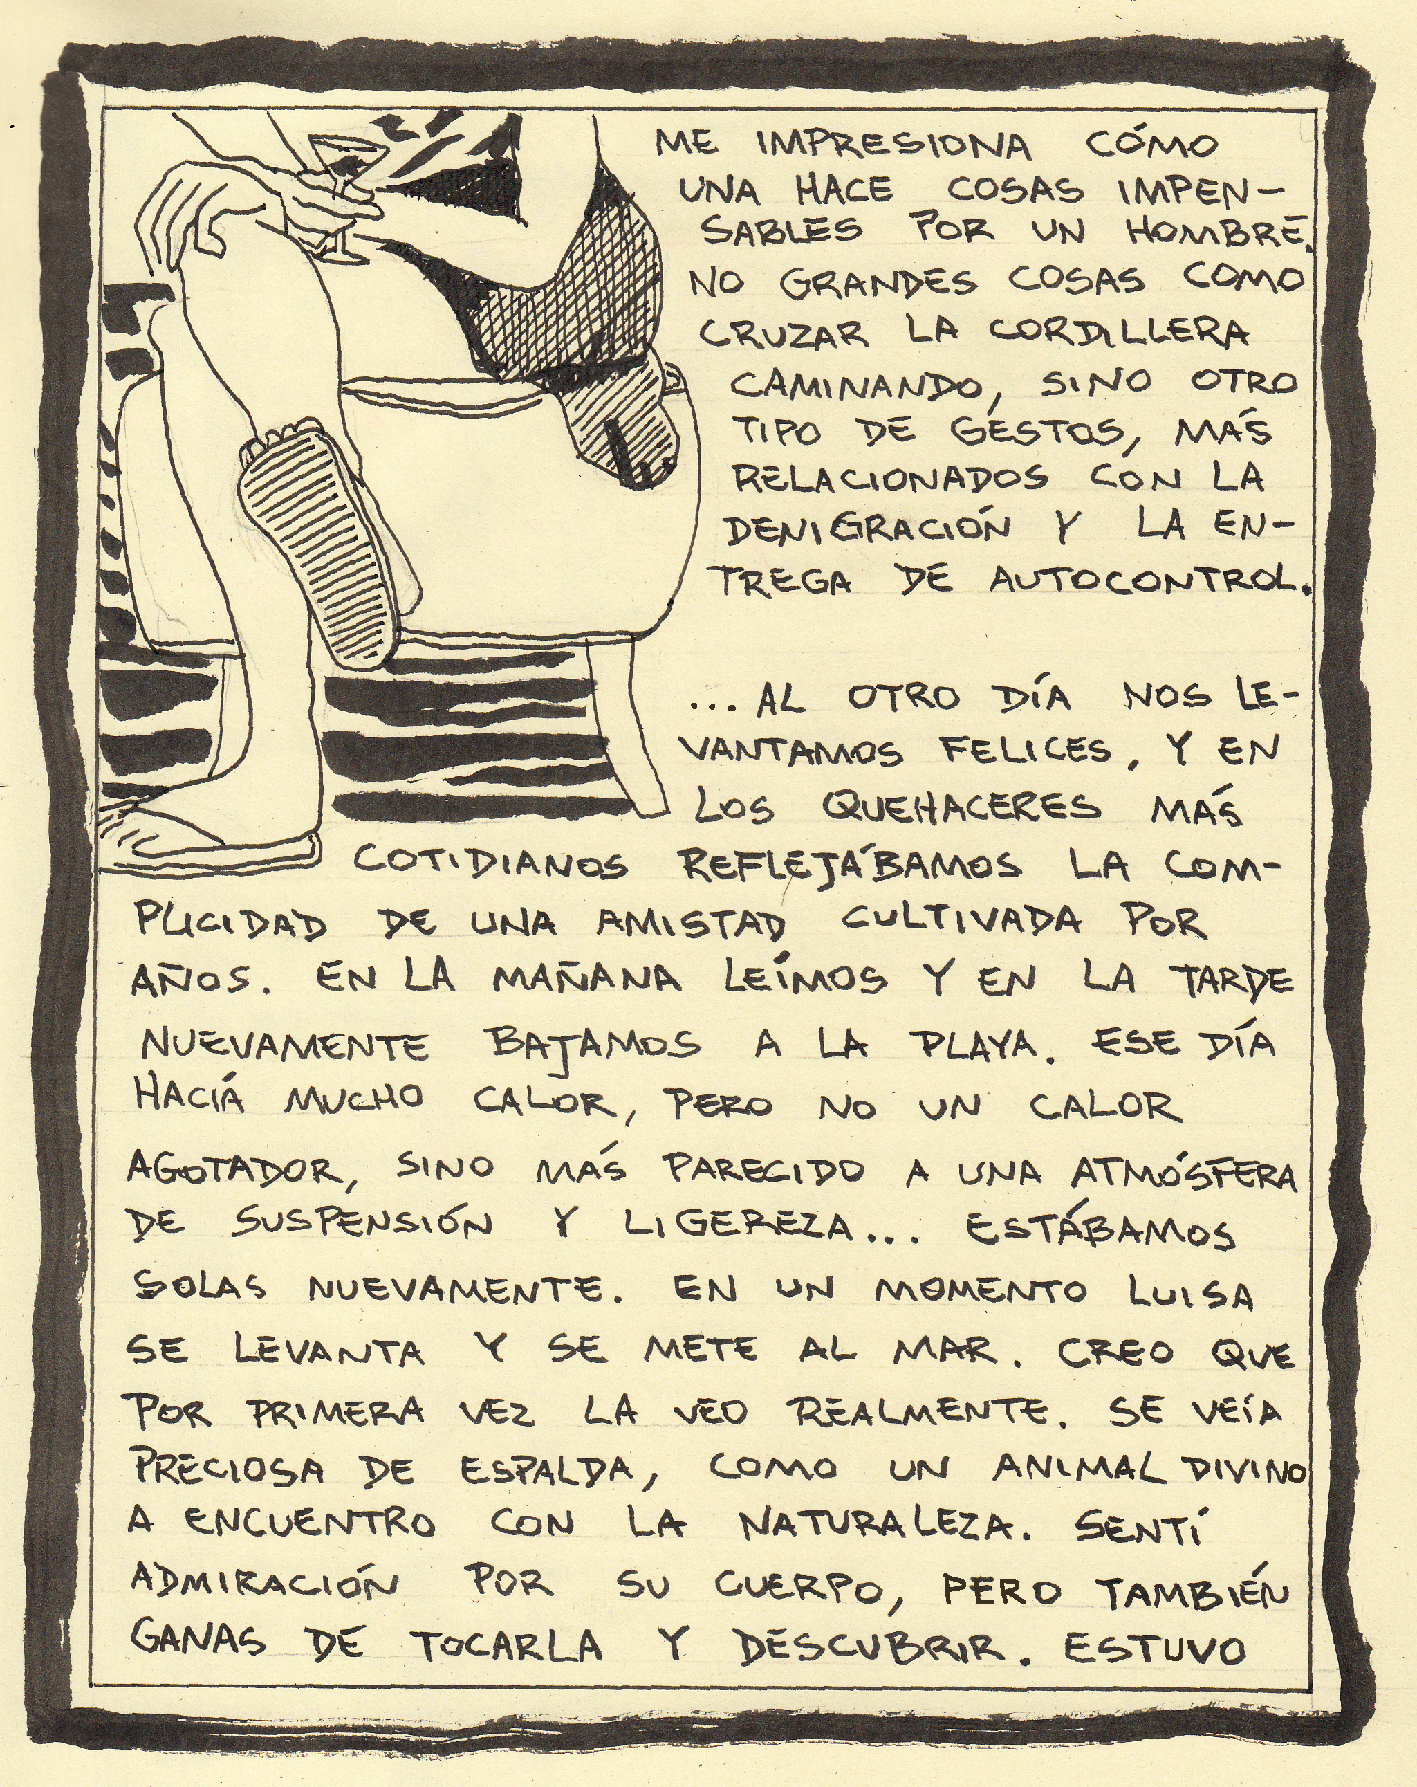 ME IMPRESIONA CÓMO
UNA HACE COSAS IMPEN-
SABLES POR UN HOMBRE.
NO GRANDES COSAS COMO
CRUZAR LA CORDILLERA
CAMINANDO, SINO OTRO
TIPO DE GESTOS, MÁS
RELACIONADOS CON LA
DENIGRACIÓN Y LA EN-
TREGA DE AUTOCONTROL.
...AL OTRO DÍA NOS LE-
VANTAMOS FELICES, Y EN
LOS QUEHACERES MÁS
COTIDIANOS REFLEJÁBAMOS LA COM-
PLICIDAD DE UNA AMISTAD CULTIVADA POR
AÑOS. EN LA MAÑANA LEÍMOS Y EN LA TARDE
NUEVAMENTE BAJAMOS A LA PLAYA. ESE DÍA
HACIÁ MUCHO CALOR, PERO NO UN CALOR
AGOTADOR, SINO MÁS PARECIDO A UNA ATMÓSFERA
DE SUSPENSIÓN Y LIGEREZA... ESTÁBAMOS
SOLAS NUEVAMENTE. EN UN MOMENTO LUISA
SE LEVANTA Y SE METE AL MAR. CREO QUE
POR PRIMERA VEZ LA VEO REALMENTE. SE VEÍA
PRECIOSA DE ESPALDA, COMO UN ANIMAL DIVINO
A ENCUENTRO CON LA NATURALEZA. SENTÍ
ADMIRACIÓN POR SU CUERPO, PERO TAMBIÉN
GANAS DE TOCARLA Y DESCUBRIR. ESTUVO